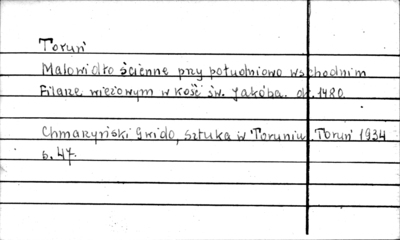 Toruń
Malowidło ścienne przy południowo wschodnim
filarze wieżowym w kość św. Jakóba. ok. 1480.
Chmarzyński Gwido, Sztuka w Toruniu Toruń 1934
s. 47.